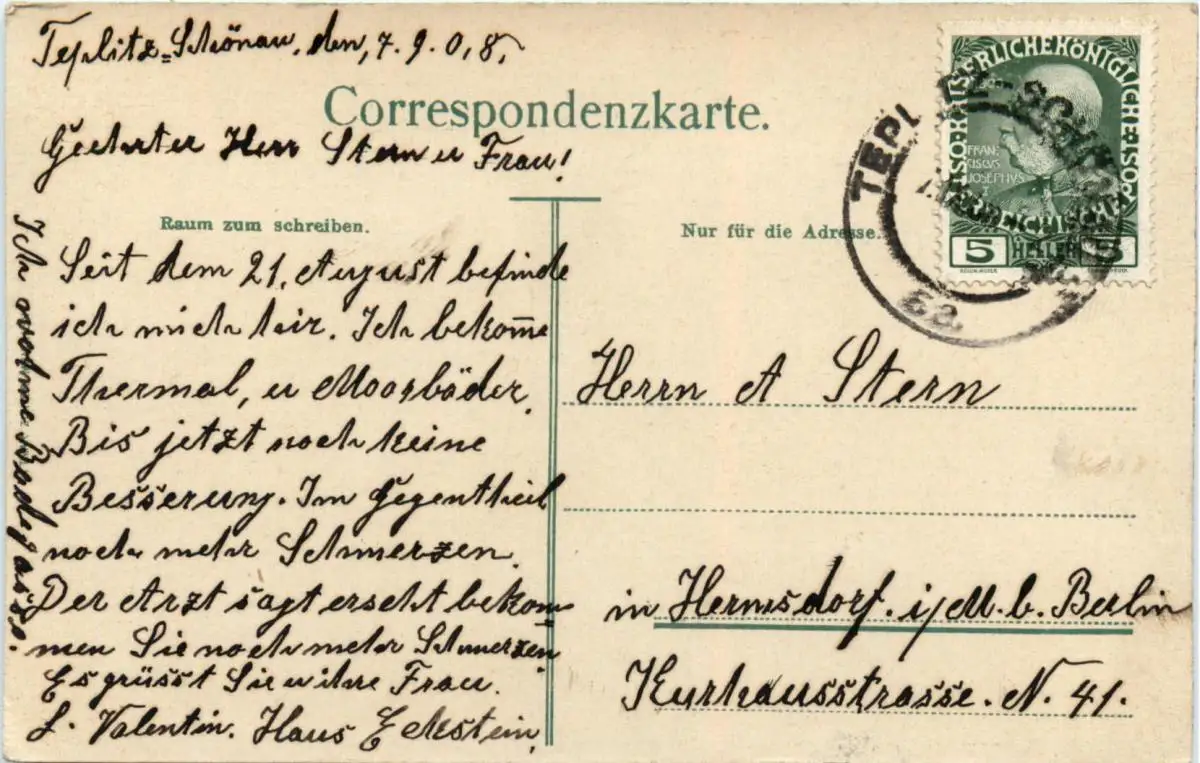 Teplitz=Schönau, den, 7. 9. 0,8,
Correspondenzkarte.
Geehrter Herr Stern u Frau!
Raum zum schreiben.
Seit dem 21. August befinde
ich mich hir. Ich bekom̅e
Thermal, u Moorbäder.
Bis jetzt noch keine
Besserung. Im Gegentheil
noch mehr Schmerzen.
Der Arzt sagt erscht bekom=
men Sie noch mehr Schmerzen
Es grüsst Sie u ihre Frau.
L. Valentin. Haus Eckstein,
Ich wohne Badegasse.
Nur für die Adresse.
KAISERLICHE KÖNIGLICHE
ÖSTERREICHISCHE POST
FRAN
CISCVS
JOSEPHVS
I
5 HELLER 5
TEPLITZ-SCHÖNAU
Herrn A Stern
in Hermsdorf. i/M. b. Berlin
Kurhausstrasse. N. 41.